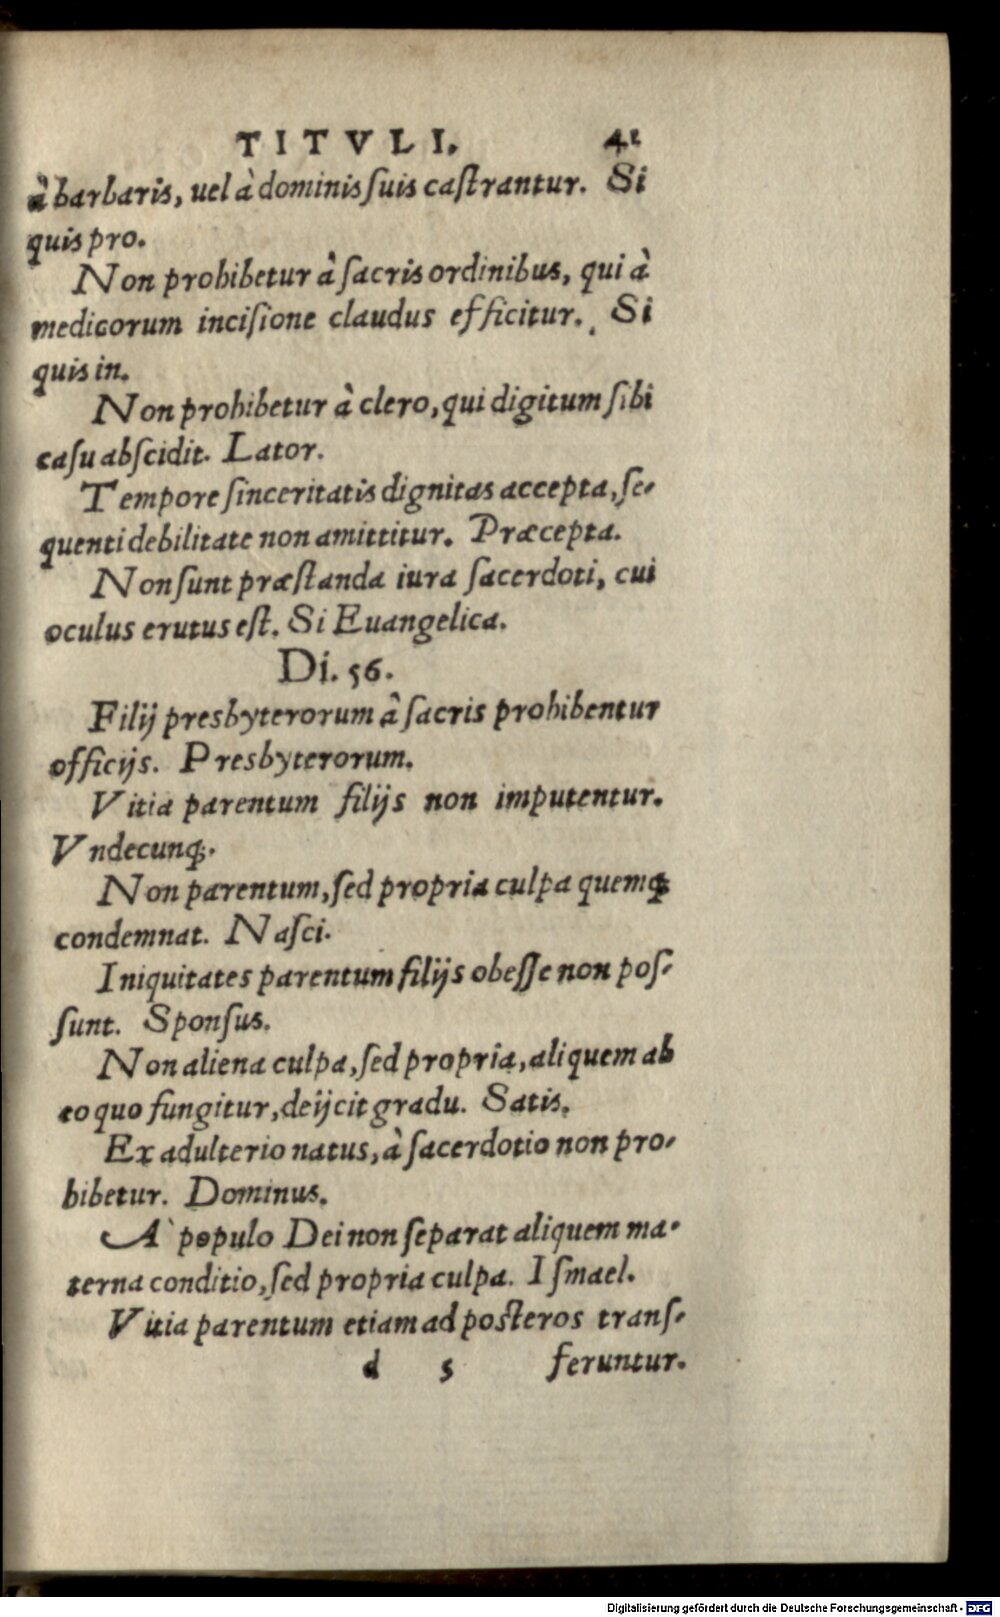 TITVLI. 41
à barbaris, uel à dominis ſuis caſtrantur. Si
quis pro.
Non prohibetur à ſacris ordinibus, qui à
medicorum inciſione claudus efficitur. Si
quis in.
Non prohibetur à clero, qui digitum ſibi
caſu abſcidit. Lator.
Tempore ſinceritatis dignitas accepta, ſe-
quenti debilitate non amittitur. Præcepta.
Non ſunt præſtanda iura ſacerdoti, cui
oculus erutus eſt. Si Euangelica.
Di. 56.
Filij presbyterorum à ſacris prohibentur
officijs. Presbyterorum.
Vitia parentum filijs non imputentur.
Vndecunq;.
Non parentum, ſed propria culpa quemq;
condemnat. Naſci.
Iniquitates parentum filijs obeſſe non poſ-
ſunt. Sponſus.
Non aliena culpa, ſed propria, aliquem ab
eo quo fungitur, deijcit gradu. Satis.
Ex adulterio natus, à ſacerdotio non pro-
hibetur. Dominus.
A` populo Dei non ſeparat aliquem ma-
terna conditio, ſed propria culpa. Iſmael.
Vitia parentum etiam ad poſteros tranſ-
d 5 feruntur.
Digitalisierung gefördert durch die Deutsche Forschungsgemeinschaft - DFG